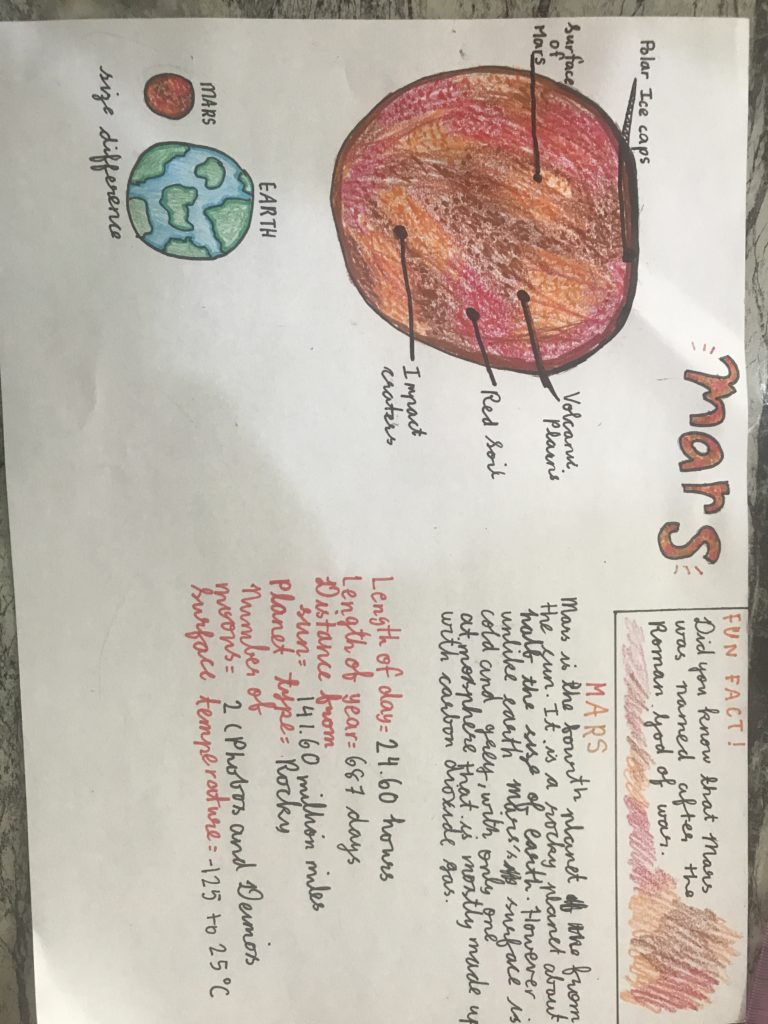 Mars
Polar Ice caps
Surface
of
Mars
Volcanic
Plains
Red Soil
Impact
craters
MARS
EARTH
size difference
FUN FACT!
Did you know that Mars
was named after the
Roman God of war.
MARS
Mars is the fourth planet from
the sun. It is a rocky planet about
half the size of earth. However
unlike earth mars's surface is
cold and grey, with only one
atmosphere that is mostly made up
with carbon dioxide gas.
Length of day= 24.60 hours
Length of year= 687 days
Distance from
sun= 141.60 million miles
Planet type= Rocky
Number of
moons= 2 (Phobos and Deimos
surface temperature= -125 to 25°C